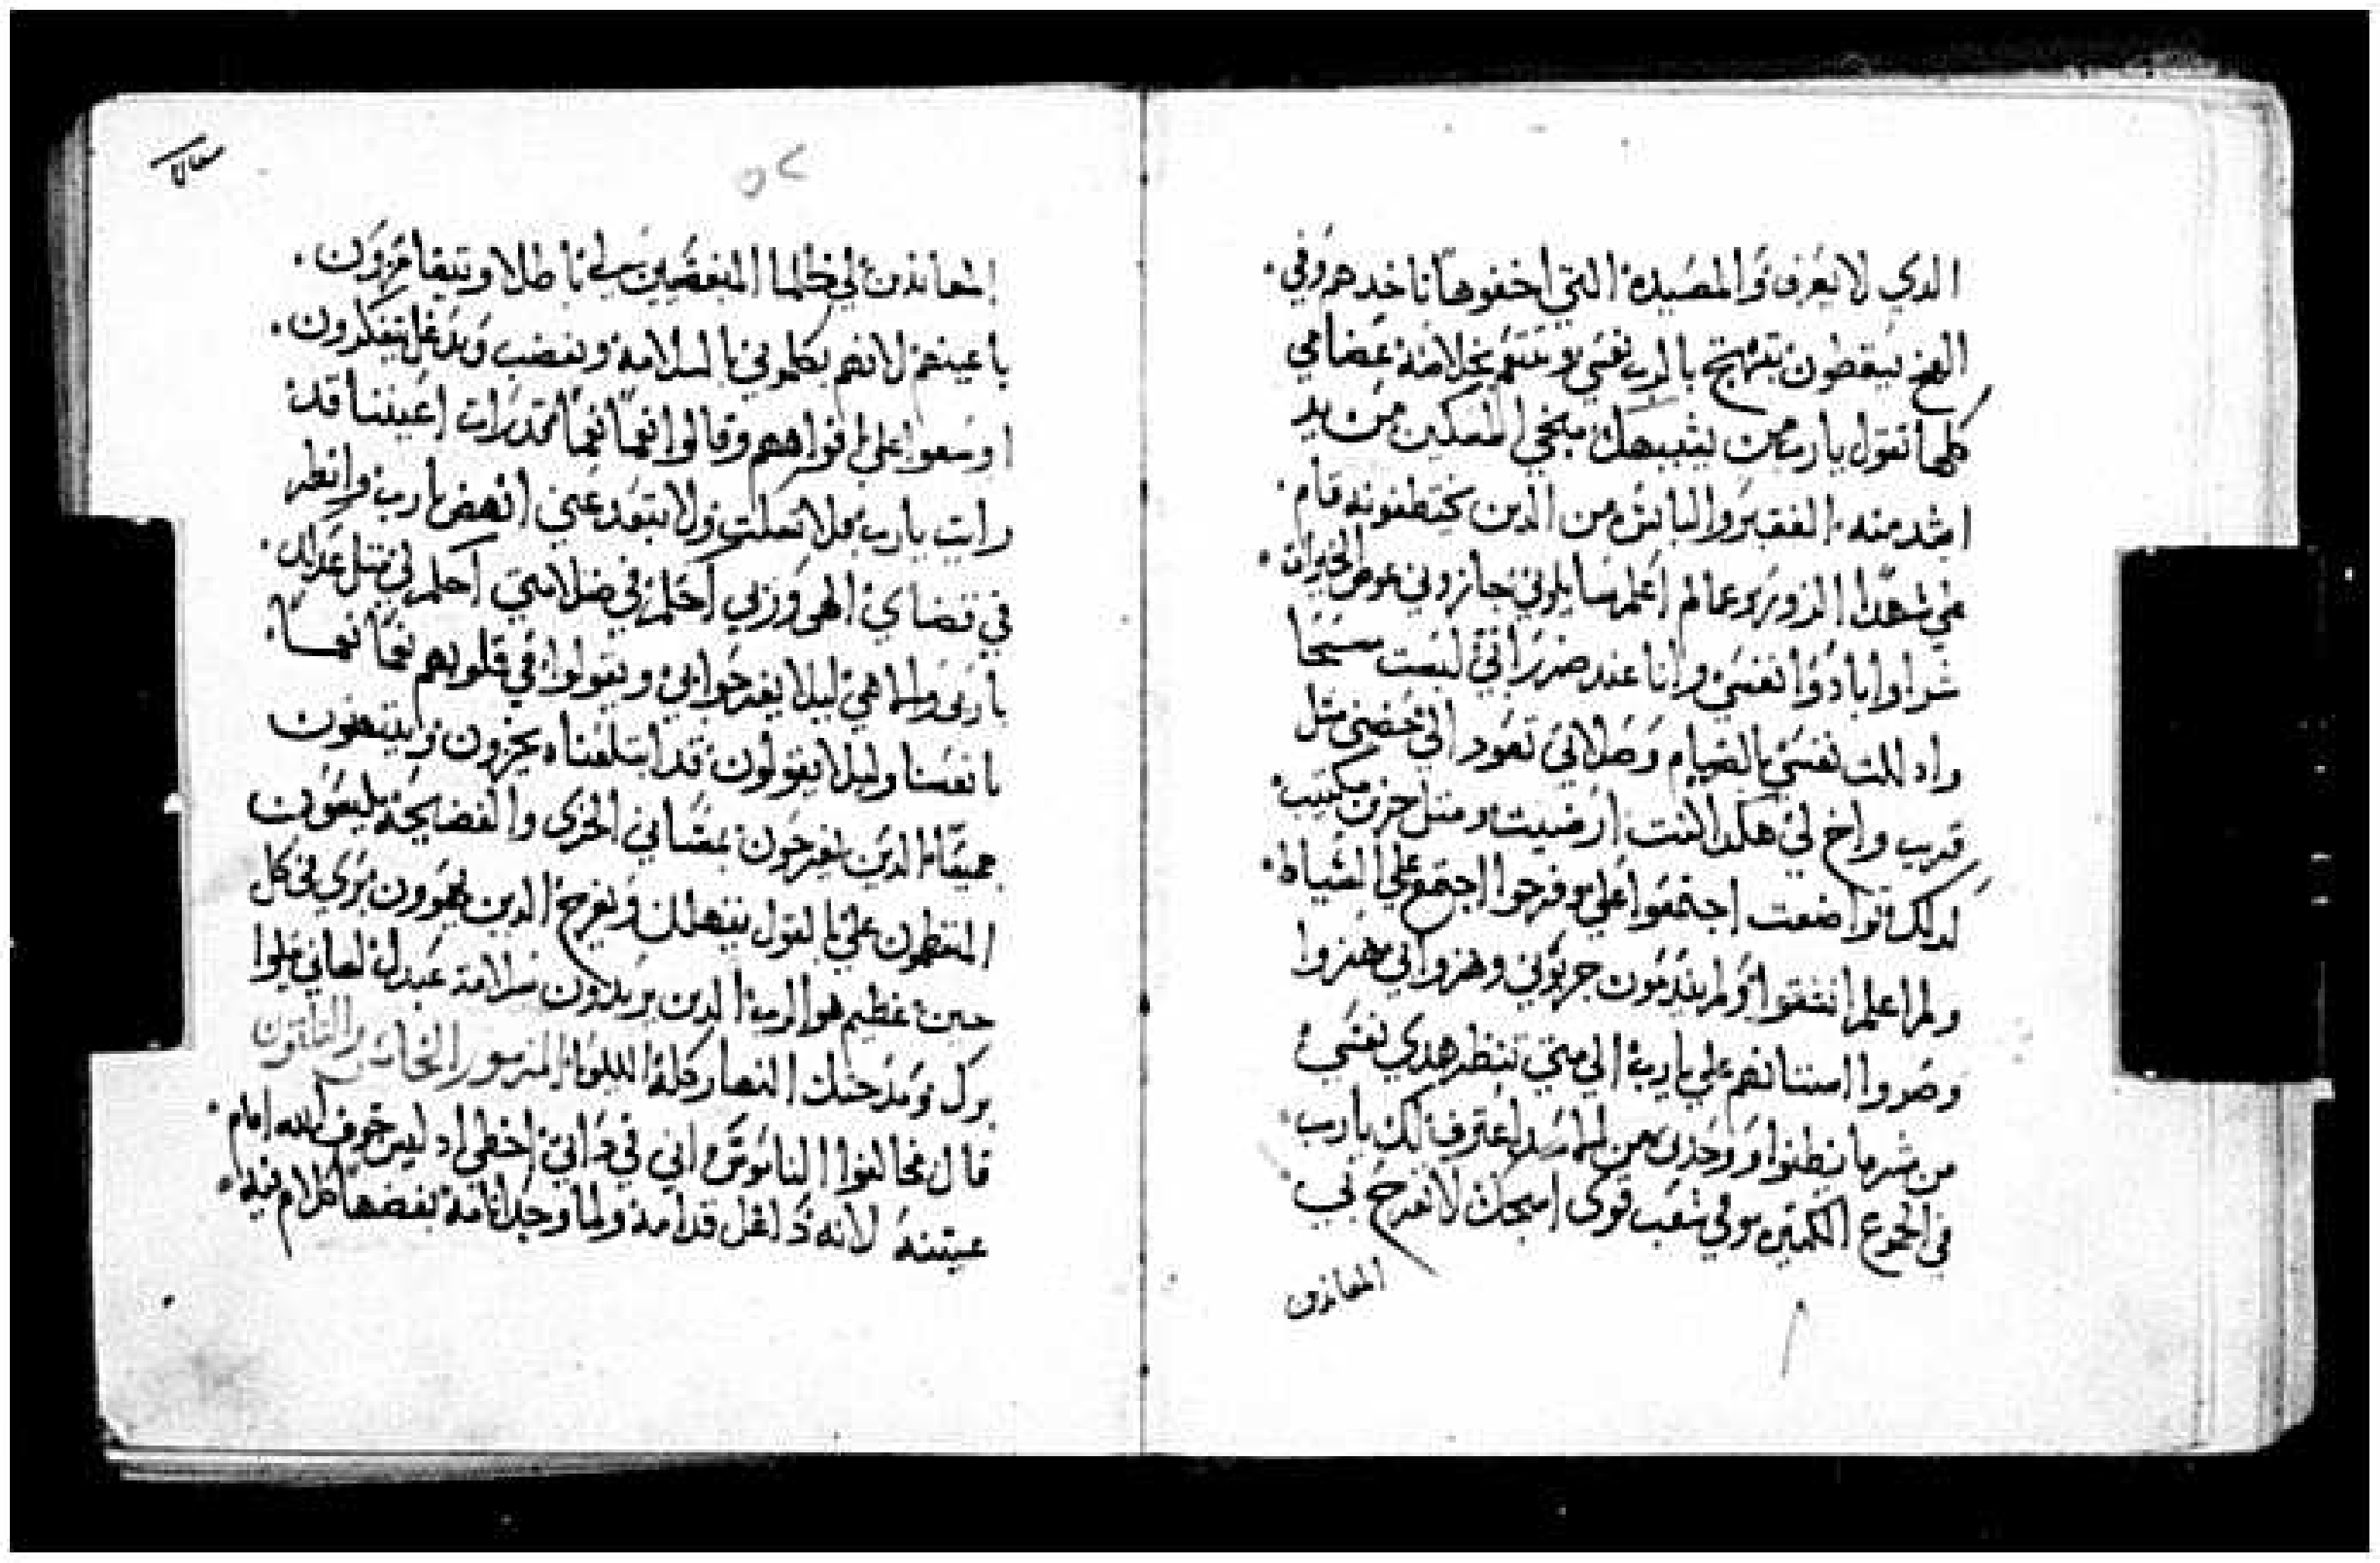 الدي لا يعرف والمصيده التي اخفوها تاخدهم وفي
الفخ يسقطون تبتهج بالرب نفسي وتتنعم بخلاصه عضامي
كلها تقول يارب من يشبهك منجي المسكين من يد
اشد منه الفقير والبائس من الدين يختطفونه قام
علي شهدا الزور وعما لم اعلم سايلوني جازوني عوض الخيرات
شرا وابادوا نفسي وانا عند ضرراتي لبست مسحا
وادللت نفسي بالصيام وصلاتي تعود الي حضني متل
قريب واخ لي هكدا كنت ارضيت ومتل حزين مكتيب
لدلك تواضعت اجتمعوا علي وفرحوا اجتمع علي السياط
ولم اعلم انشقوا ولم يندمون جربوني وهزوا بي مهزوا
وصروا اسنانهم علي يارب الي متي تنظر هدي نفسي
من شر ما نطنوا ووحدتي من الاسد اعترف لك يارب
في الجموع الكثيره وفي شعب قوي اسبحك لا تفرح بي
المعاندين
٥٢
المعاندين لي ظلما المبغضين لي باطلا ويتغامزون
باعينهم لانهم يكلموني بالسلامه وبغضب وبدغل يتفكرون
اوسعوا علي افواههم وقالوا نعما نعما قد رات اعيننا قد
رات يارب فلا تسكت ولا تبتعد عني انهض يارب وانظر
في قضاي الهي وربي احكم في ضلامتي احكم لي متل عدلك
ياربي والهي ليلا يفرحوا بي ويقولوا في قلوبهم نعما نعما
يا نفسنا وليلا يقولون قد ابتلعناه يخزون ويبتهتون
جميعا الدين يفرحون بمصايبي الخزي والفضيحه يلبسون
المتعظمون علي بالقول يبتهلل ويفرح الدين يهوون بري في كل
حين عظيم هو الرب الدين يريدون سلامة عبدك لساني يتلوا
برك ومدحتك النهار كله الليلويا المزمور الخامس والتلتون
قال مخالفوا الناموس اني في داتي اخطي اد ليس خوف الله امام
عينيه لانه دغل قدامه ولما وجد اتامه بغضها كلام فيه